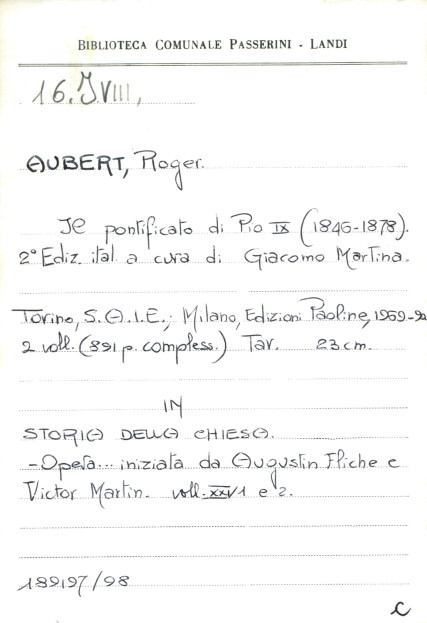 BIBLIOTECA COMUNALE PASSERINI - LANDI
16. J VIII,
AUBERT, Roger.
Il pontificato di Pio IX (1846-1878).
2° Ediz. ital a cura di Giacomo Martina.
Torino, S.A.I.E.; Milano, Edizioni Paoline, 1969-
2 voll. (891 p. compless.) Tav. 23 cm.
IN
STORIA DELLA CHIESA.
-Opera... iniziata da Augustin Fliche e
Victor Martin. voll. XXI/1 e 2.
189197/98
C